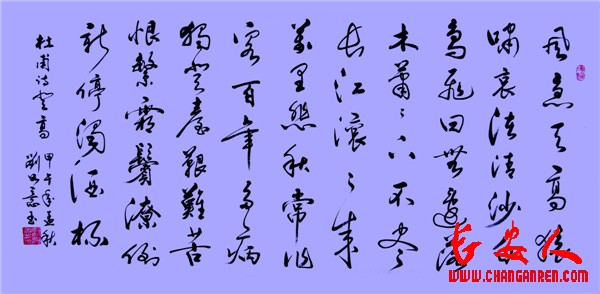 風急天高猿
嘯哀渚清沙白
鳥飛回無邊落
木蕭〻下不尽
長江滾〻来
萬里悲秋常作
客百年多病
獨登臺艱難苦
恨繁霜鬢潦倒
新停濁酒杯
杜甫詩登高
甲午年孟秋
劉意书
长安人
www.changanren.com